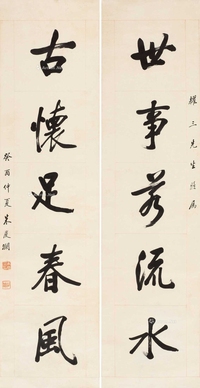 耀三先生属
世事若流水
古懷足春風
癸酉仲夏朱